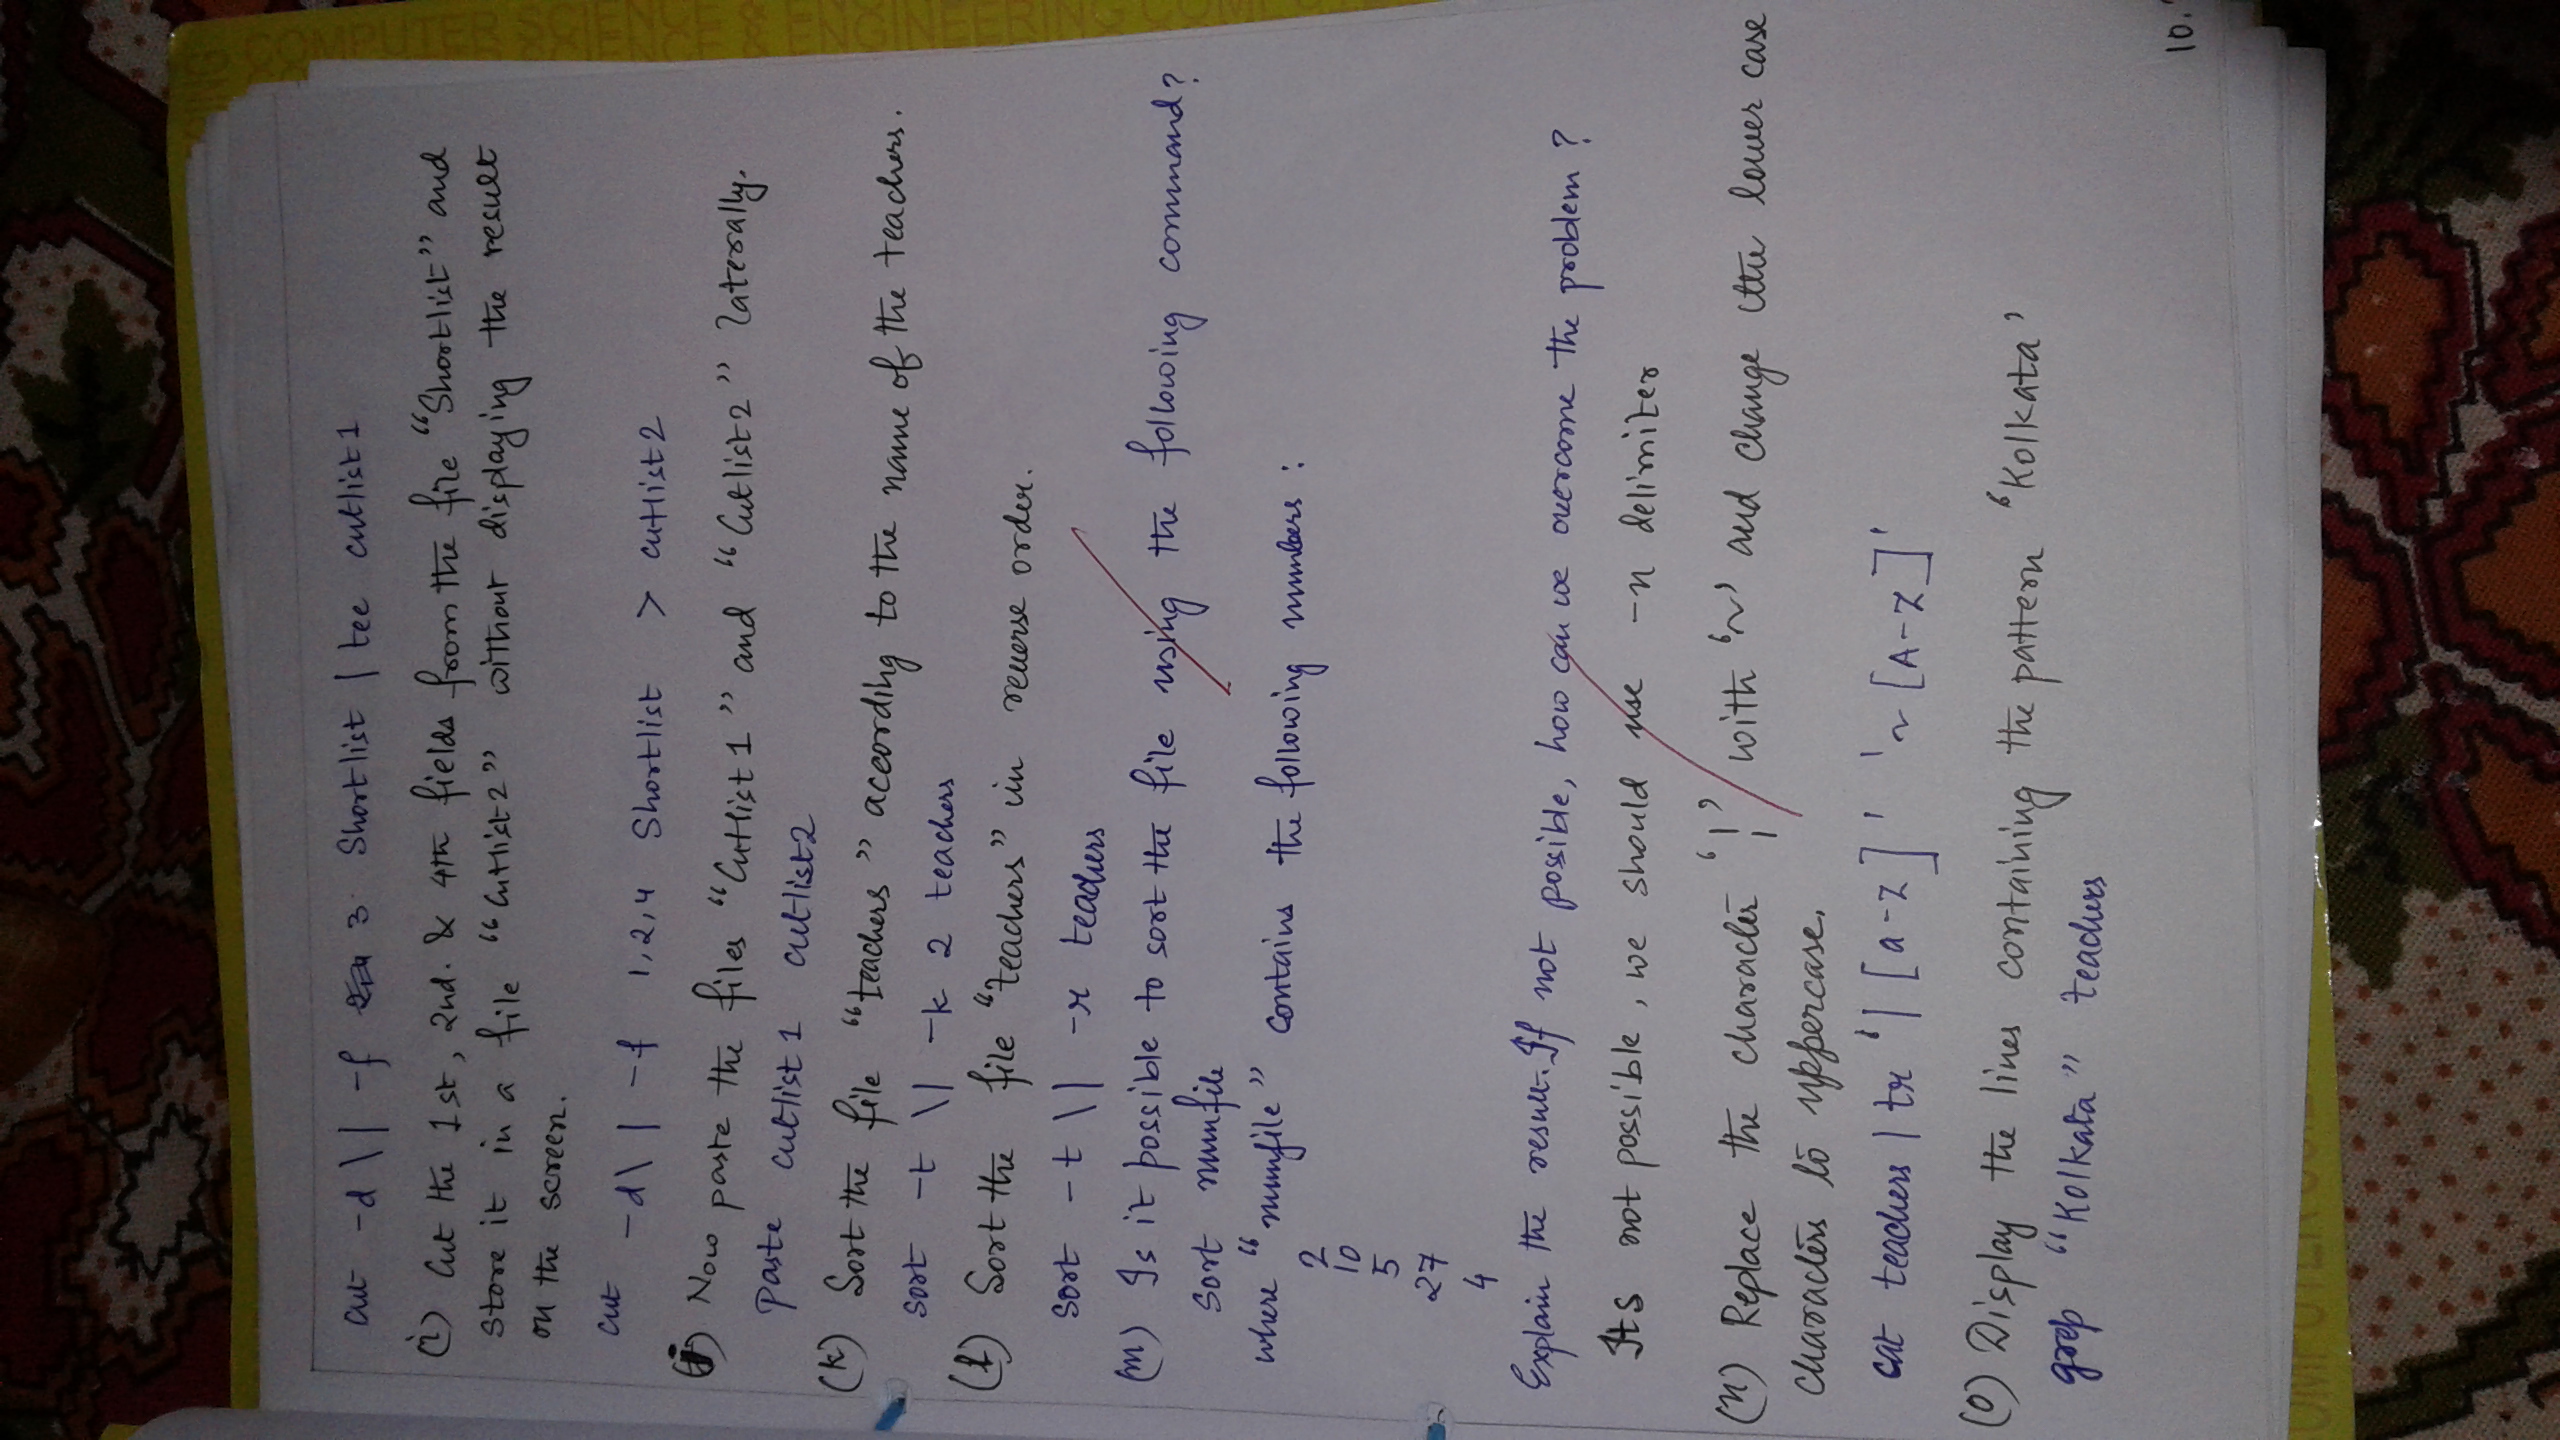 cut -d \| -f 3 Shortlist | tee cutlist1
(i) Cut the 1st, 2nd. & 4th fields from the file "Shortlist" and
store it in a file "Cutlist2" without displaying the result
on the screen.
cut -d\| -f 1,2,4 Shortlist > cutlist2
(j) Now paste the files "Cutlist1" and "Cutlist2" laterally.
paste cutlist1 cutlist2
(k) Sort the file "teachers" according to the name of the teachers.
sort -t \| -k 2 teachers
(l) Sort the file "teachers" in reverse order.
sort -t \| -r teachers
(m) Is it possible to sort the file using the following command?
sort numfile
where "numfile" contains the following numbers:
2
10
5
27
4
Explain the result. If not possible, how can we overcome the problem?
Its not possible, we should use -n delimiter
(n) Replace the character '¦' with '~' and change the lower case
characters to uppercase.
cat teachers | tr '|[a-z]' '~[A-Z]'
(o) Display the lines containing the pattern 'Kolkata'
grep "Kolkata" teachers
10.